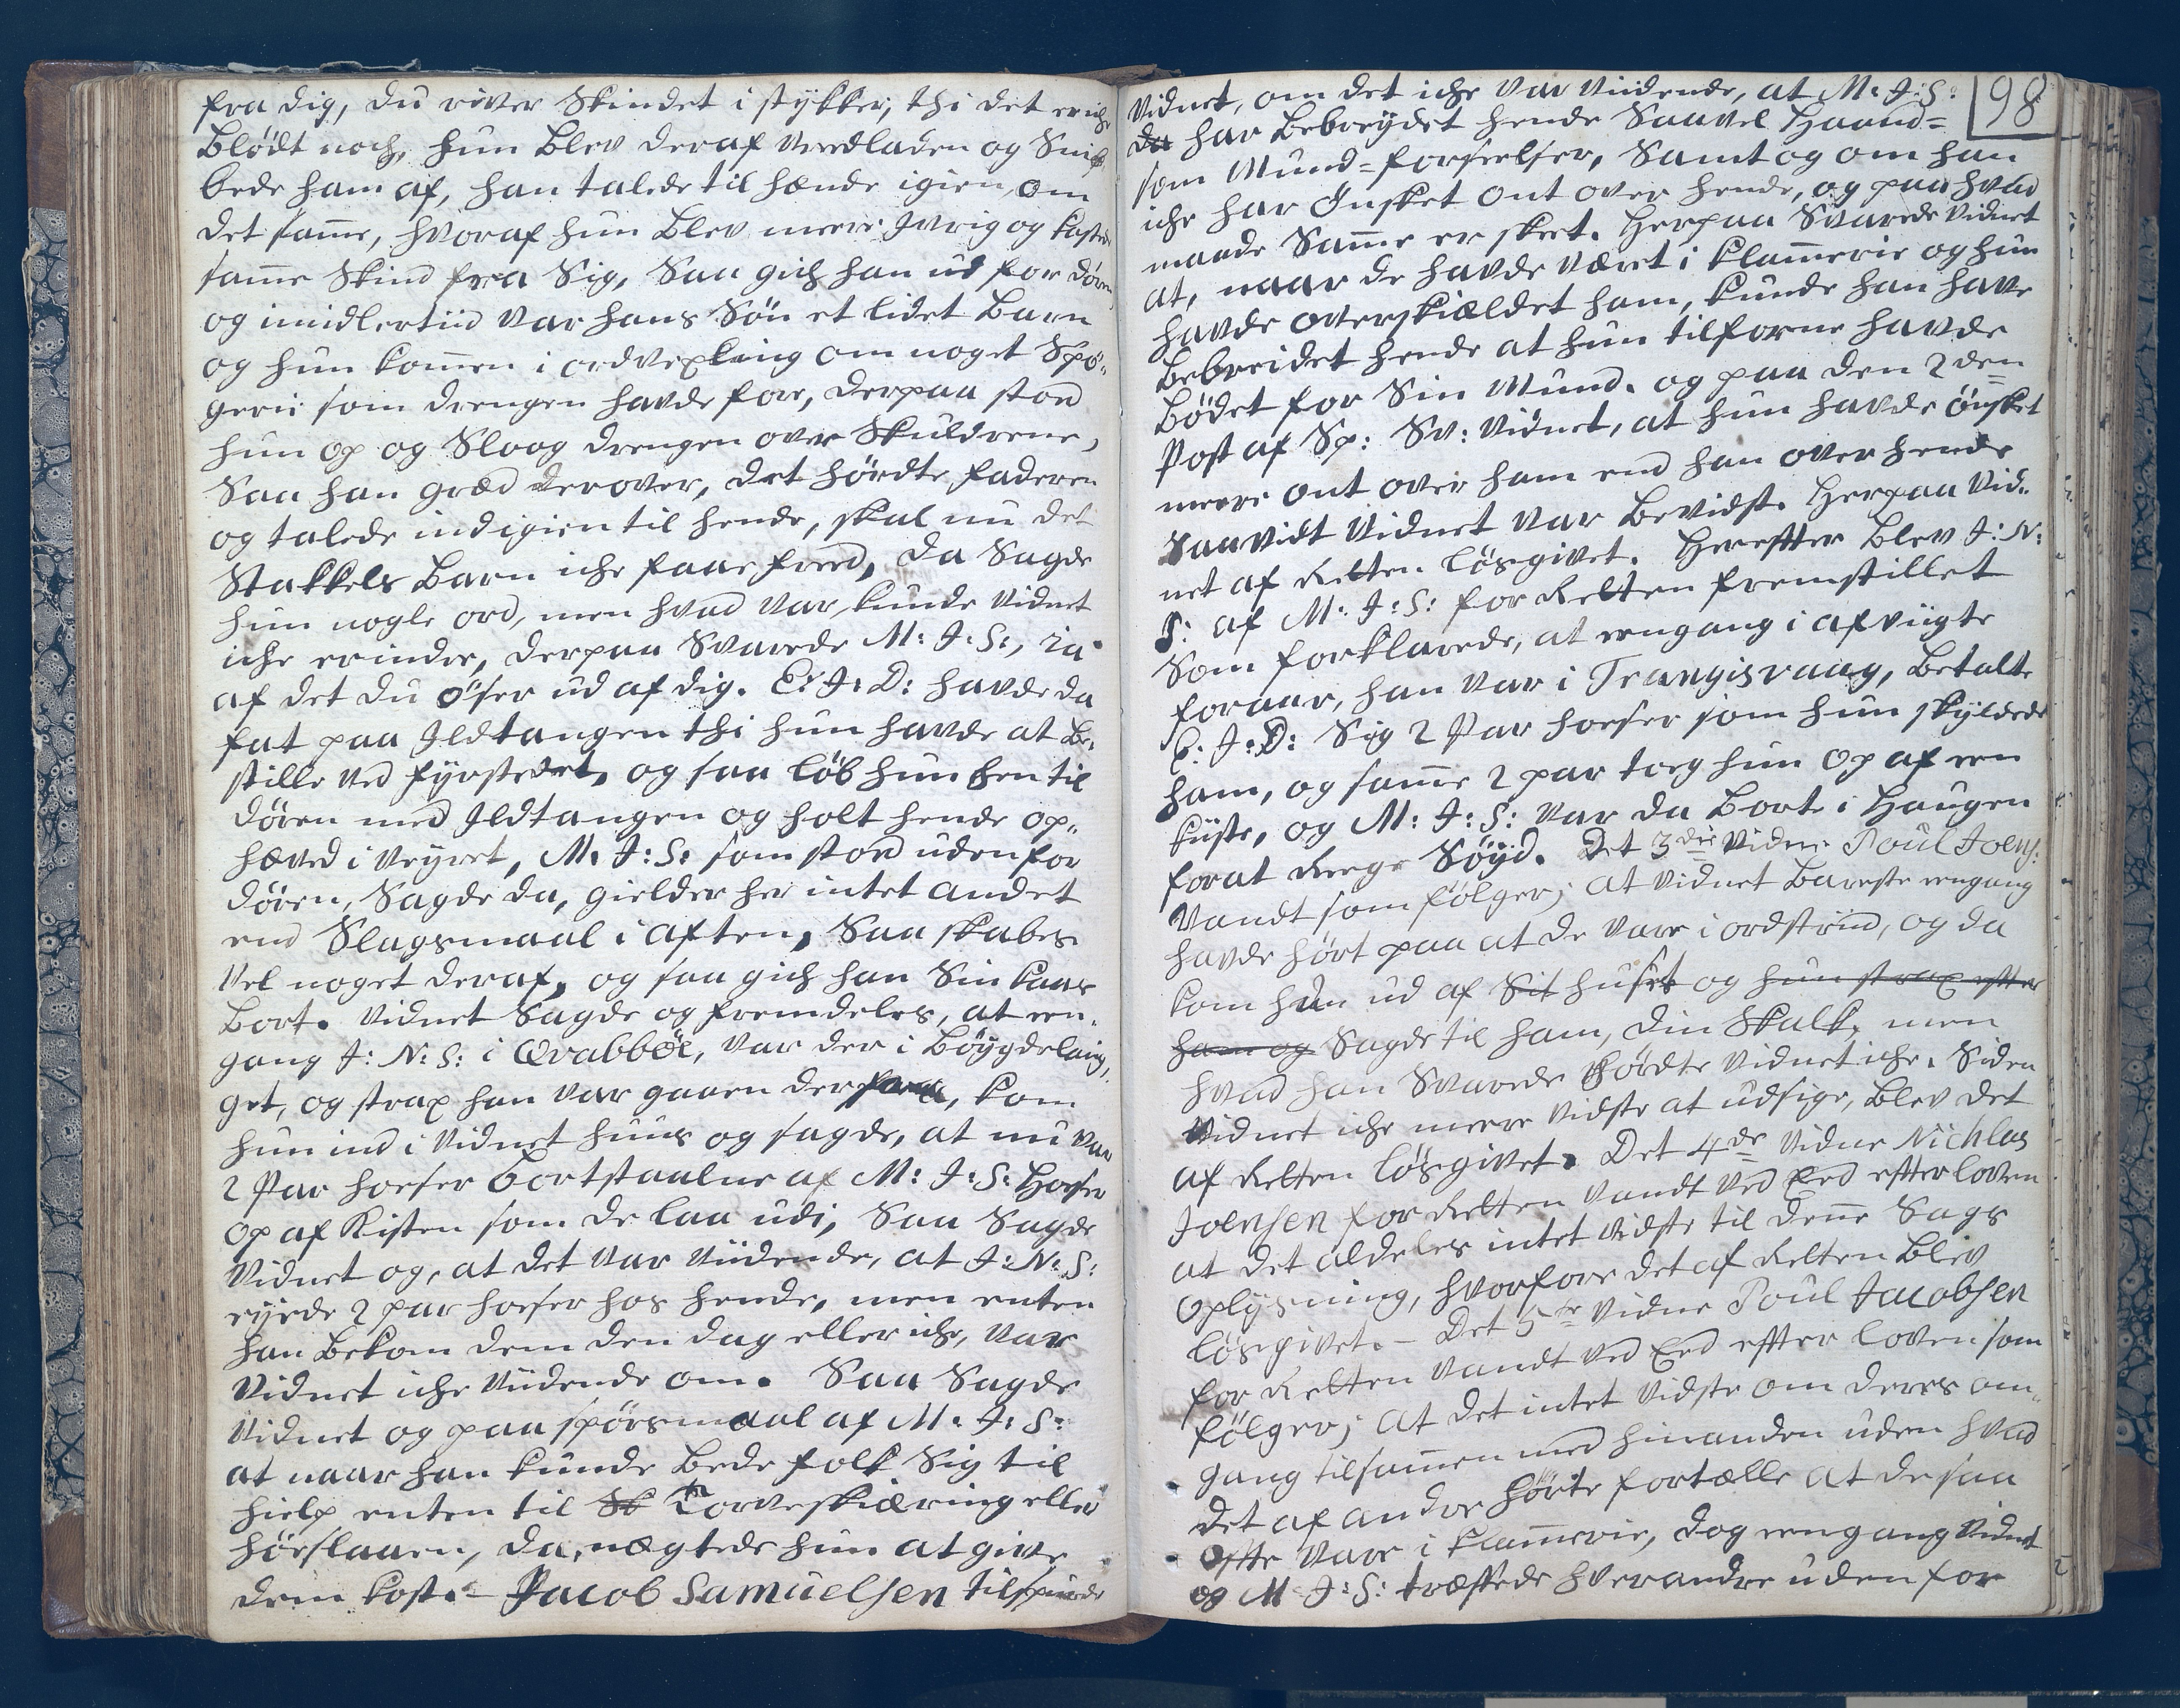 fra dig, du river Skindet i stykker, thi det er iche
Blödt noch, hun Blev deraf Vredladen og Snib-
bede ham af, han talede til hænde igien, om
det same, hvoraf hun Blev meere Ivrig og kastede
same Skind fra Sig, Saa gich han ud for dören
og imidlertiid var hans Sön et lidet Barn
og hun komen i ordvexling om noget Spö-
gerie som drengen havde fore, derpaa stod
hun op og Sloog drengen over Skuldrene,
Saa han græd derover, det hördte faderen
og talede ind igien til hende, skal nu det
Stakkels Barn iche faae fred, da Sagde
hun nogle ord, men hvad var, kunde Vidnet
iche erindre, derpaa Svarede M: J: S:, ia
af det du öser ud af dig. E: J: D: havde da
fat paa Ildtangen thi hun havde at Be-
stille ved fyrstedet, og saa löb hun hen til
dören med Ildtangen og holt hende op-
hæved i Veyret, M: J: S: som stod uden for
dören, Sagde da, gielder her intet andet
end Slagsmaal i aften, Saa skabes
vel noget deraf, og saa gich han Sin kaas
Bort. Vidnet Sagde og fremdeles, at een-
gang J: N: S: i Qvabböe, var der i Böygdelaug,
get, og strax han var gaaen derfra, kom
hun ind i Vidnet huus og sagde, at nu var
2 Par hoeser Bortstaalne af M: J: S: Hoeser
op af Kisten som de laa udi, Saa Sagde
Vidnet og, at det var Viidende, at J: N: S:
eyede 2 par hoeser hos hende, men enten
han Bekom dem den dag eller iche, var
Vidnet iche Viidende om. Saa Sagde
Vidnet og paa spörsmaal af M: J: S:
at naar han kunde Bede folk Sig til
hielp enten til Sk Torveskiæring eller
höeslaaen, da nægtede hun at give
dem kost. - Jacob Samuelsen tilspurde
98
Vidnet, om det iche var Viidende, at M: J: S:
da har Bebreydet hende Saavel Haand=
som Mund=forseelser, Samt og om han
iche har Önsket ont over hende, og paa hvad
maade Same er skeet. Herpaa Svarede Vidnet
at, naar de havde været i klamerie og hun
havde overskieldet ham, kunde han have
Bebreidet hende at hun tilforne havde
Bödet for Sin Mund. og paa den 2den
Post af Sp: Sv: Vidnet, at hun havde önsket
meere ont over ham end han over hende
Saavidt Vidnet var Bevidst. Herpaa Vid-
net af Retten lösgivet. Hereffter Blev J: N:
S: af M: J: S: for Retten fremstillet
Som forklarede, at eengang i afviigte
foraar, han var i Trangisvaag, Betalte
E: J: D: Sig 2 Par hoeser som hun skyldede
ham, og same 2 par toeg hun op af een
kiiste, og M: J: S: var da Borte i Haugen
for at Reege Söyd. Det 3die Vidne Poul Joens:
Vandt som fölger; at Vidnet Bareste eengang
havde hört paa at de vare i ordstriid, og da
kom hun ud af Sit huset og hun strax effter
ham og Sagde til ham, din Skalk, men
hvad han Svarede hördte Vidnet iche. Siden
Vidnet iche meere vidste at udsige, Blev det
af Retten lösgivet. Det 4de Vidne Nichlas
Joensen for Retten Vandt ved Eed effter loven
at det aldeles intet vidste til dene Sags
Oplysning, hvorfore det af Retten Blev
lösgivet. - Det 5te Vidne Poul Jacobsen
for Retten Vandt ved Eed effter loven som
fölger; at det intet vidste om deres om-
gang tilsamen med hinanden uden hvad
det af andre hörte fortælle at de saa
Offte vare i klamerie, dog eengang Vidnet
og M: J: S: træffede hverandre uden for